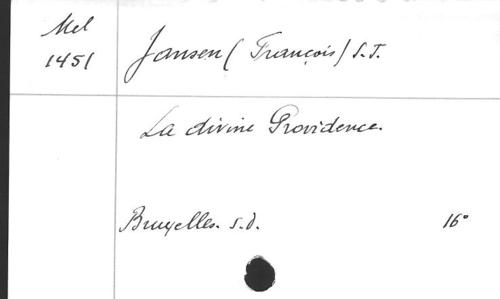 Mel
1451
Jansen (François) S.J.
La divine Providence.
Bruxelles. s.d. 16°